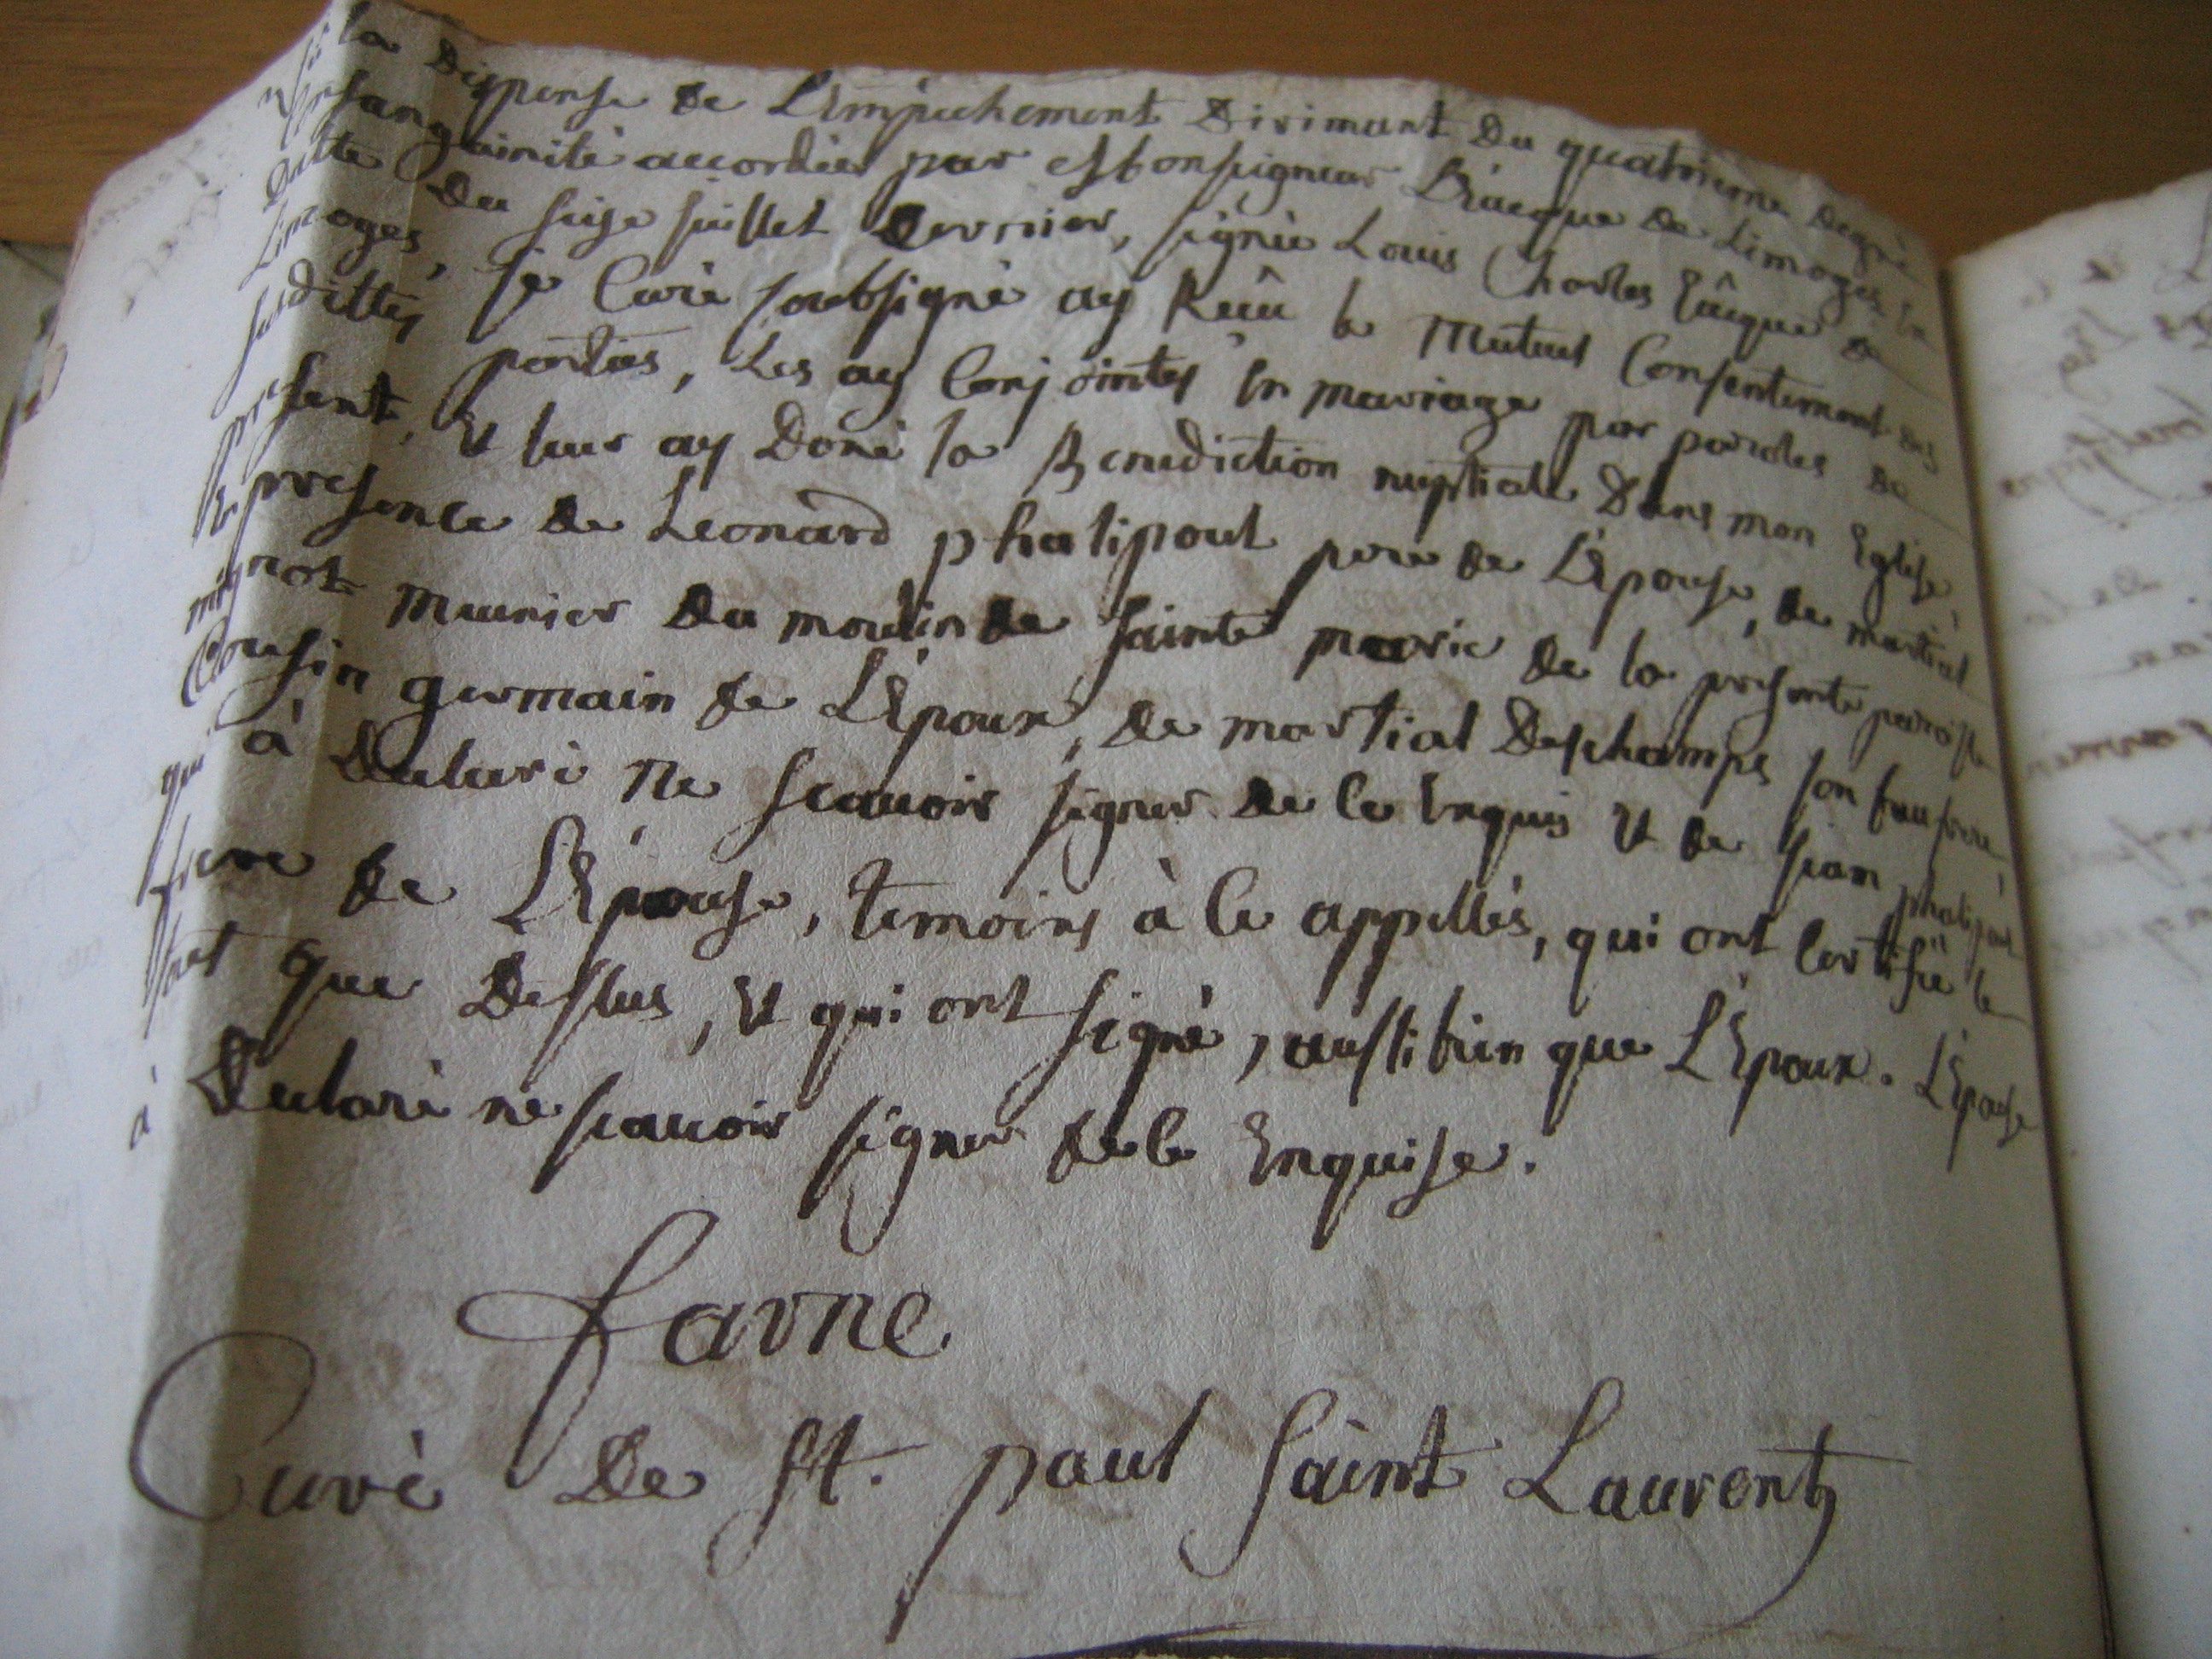 vû la Dispense de L'Empechement Dirimant Du quatrieme Degré
Consanguinité accordée par Monseigneur L'Evêque de Limoges En
Datte Du seize juillet Dernier, signée Louis Charles Evêque de
Limoges, je Curé soubsigné ay Reçu le Mutuel Consentement des
susdittes parties, Les ay Conjointes En mariage par paroles de
present, Et leur ay Doné la Benediction nuptiale Dans mon Eglise,
En presence de Leonard phalipout pere de L'Epouse, de martial
mignot Meunier Du moulin de Sainte marie de la presente paroisse
Cousin germain de L'Epoux, de martial Deschamps son beaufrere
qui à Declaré Ne scavoir signer de ce Enquis Et de jean phalipout
frere de L'Epouse, temoins à ce appellés, qui ont Certifié le
tout que Dessus, Et qui ont signé, aussi bien que L'Epoux. L'Epouse
à Declaré ne scavoir signer de ce Enquise.
Favne
Curé De St. paul Saint Laurent